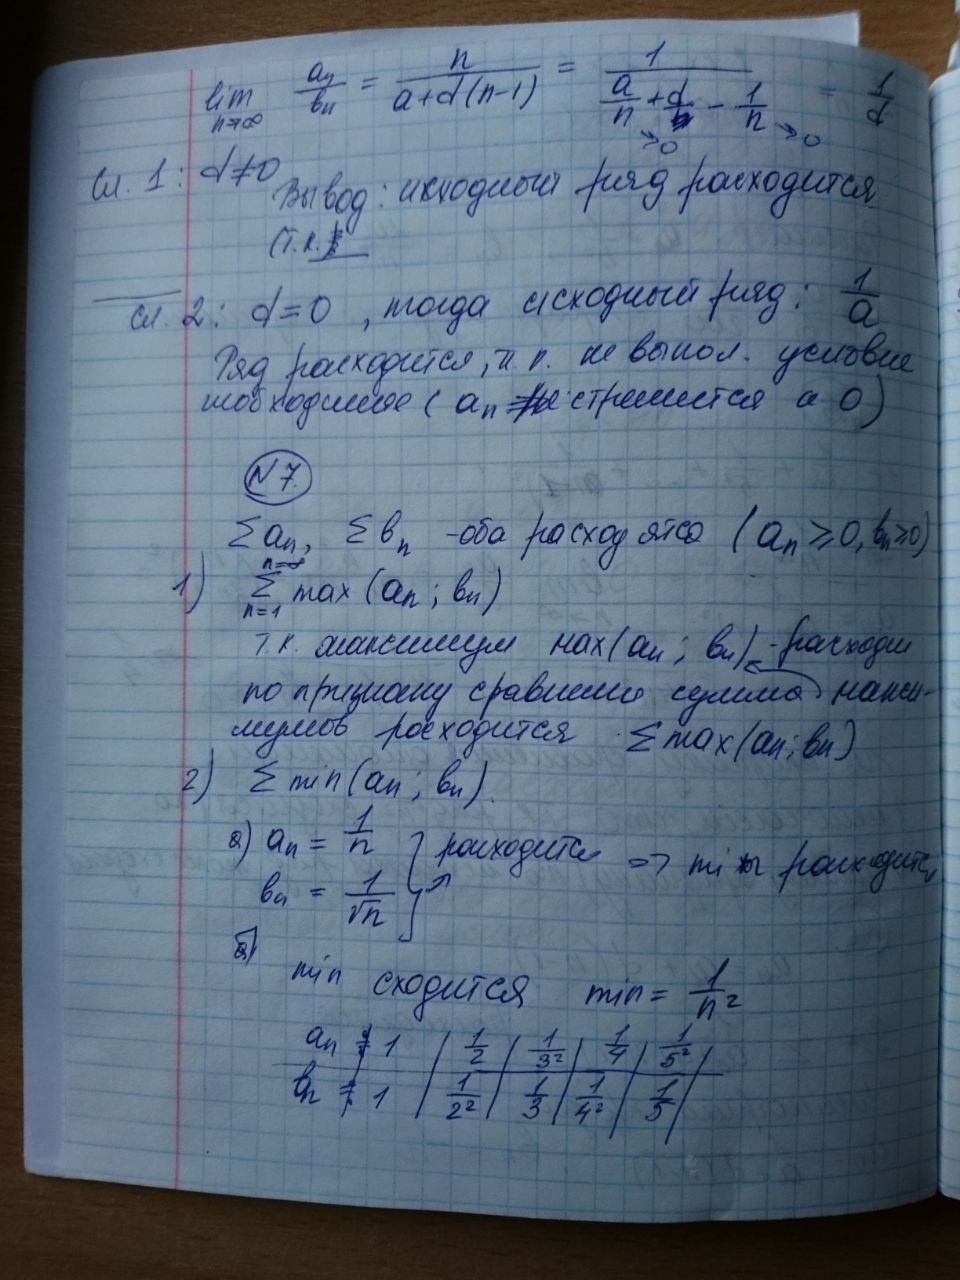 lim n→∞ aₙ/bₙ = n/(a+d(n-1)) = 1/(a/n + d - 1/n) = 1/d
→0 →0
Сл. 1: d≠0
Вывод: исходный ряд расходится
(т.к.
сл. 2: d=0, тогда исходный ряд: 1/a
Ряд расходится, т.к. не выпол. условие
необходимое (aₙ не стремится к 0)
N7.
Σaₙ, Σbₙ - оба расходятся (aₙ≥0, bₙ≥0)
1) Σ n=1 n=∞ max(aₙ; bₙ)
т.к. максимум max(aₙ; bₙ) - расходи
по признаку сравнения сумма макси-
мумов расходится Σmax(aₙ; bₙ)
2) Σ min(aₙ; bₙ).
а) aₙ = 1/n } расходится => min расходится
bₙ = 1/√n
б) min сходится min = 1/n²
aₙ = 1 | 1/2 | 1/3² | 1/4 | 1/5² |
bₙ = 1 | 1/2² | 1/3 | 1/4² | 1/5 |